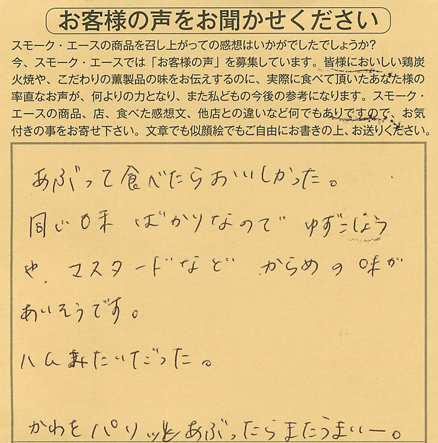 お客様の声をお聞かせください
スモーク・エースの商品を召し上がっての感想はいかがでしたでしょうか?
今、スモーク・エースでは「お客様の声」を募集しています。皆様においしい鶏炭
火焼や、こだわりの薫製品の味をお伝えするのに、実際に食べて頂いたあなた様の
率直なお声が、何よりの力となり、また私どもの今後の参考になります。スモーク・
エースの商品、店、食べた感想文、他店との違いなど何でもありですので、お気
付きの事をお寄せ下さい。文章でも似顔絵でもご自由にお書きの上、お送りください。
あぶって食べたらおいしかった。
同じ味ばかりなので ゆずこしょう
や、マスタードなど からめの味が
あいそうです。
ハムみたいだった。
かわをパリッとあぶったらまたうまいー。